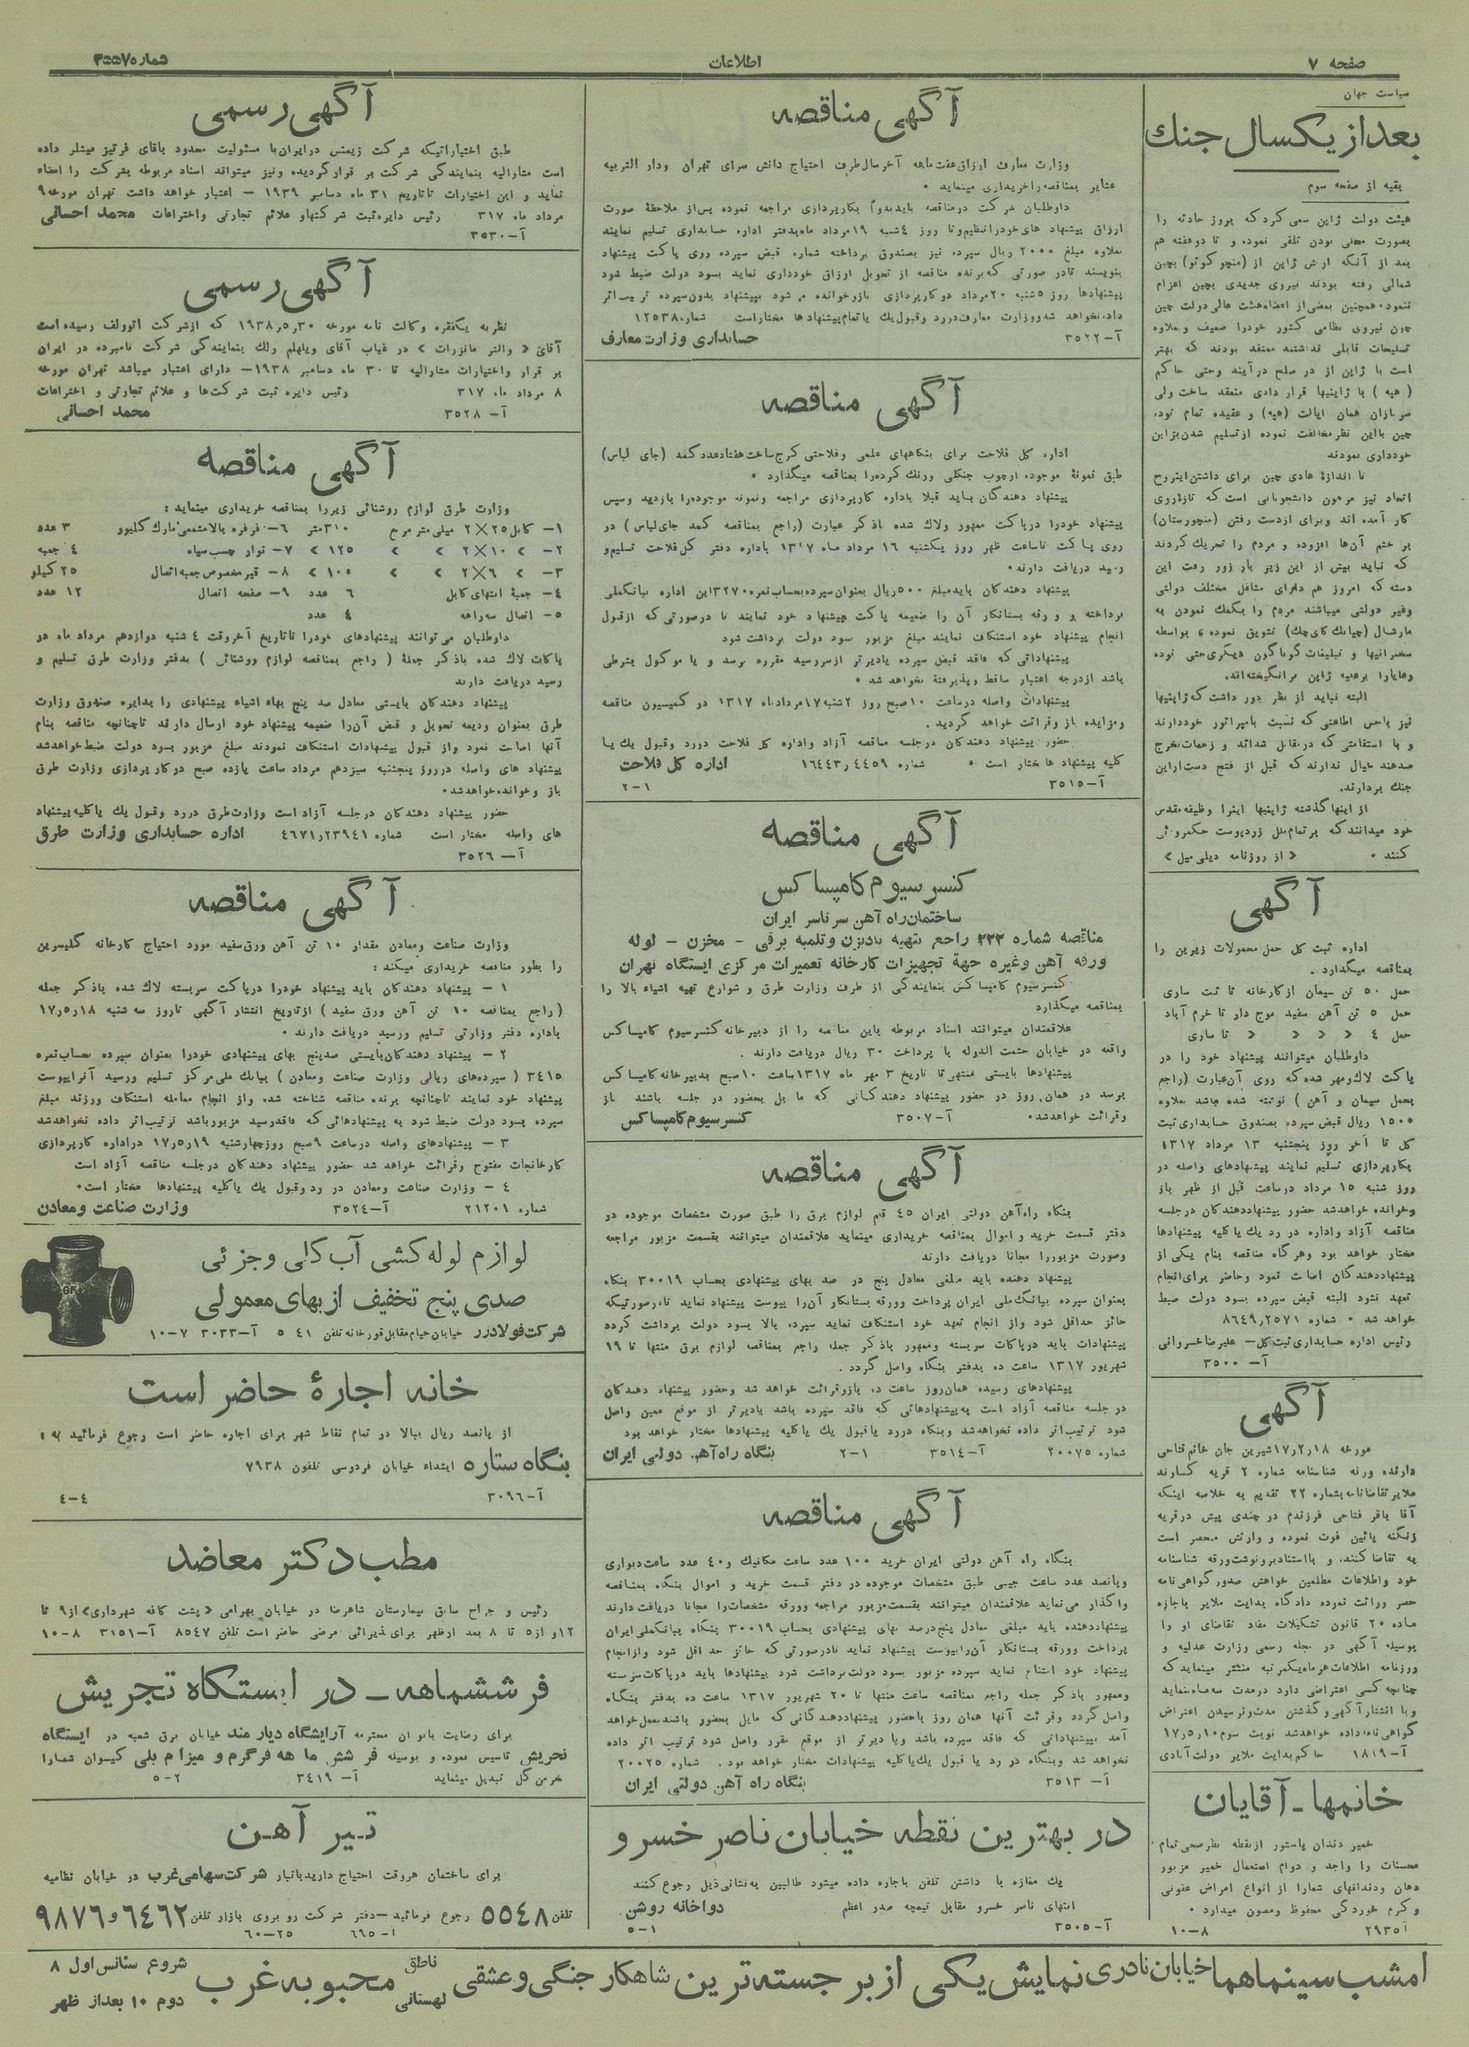 صفحه ۷
اطلاعات
شماره ۳۵۵۷
سیاست جهان
بعد از یکسال جنك
بقیه از صفحه سوم
هیئت دولت ژاپن سعی کرد که بروز حادثه را
بصورت محلی بودن تلقی نموده و تا دو هفته هم
بعد از آنکه ارتش ژاپن از (منچوکوئو) بچین
شمالی رفته بودند نیروی جدیدی بچین اعزام
ننمود، همچنین بعضی از اعضاء هیئت عالی دولت چین
چون نیروی نظامی کشور خودرا ضعیف و بعلاوه
تسلیحات قابلی نداشتند معتقد بودند که بهتر
است با ژاپن از در صلح درآیند وحتی حاکم
(هپه) با ژاپنیها قرار دادی منعقد ساخت ولی
سربازان همان ایالت (هپه) و عقیده تمام توده
چین بااین نظر مخالفت نموده از تسلیم شدن بژاپن
خودداری نمودند
البته نباید از نظر دور داشت که ژاپنیها
جنك بردارند.
از اینها گذشته ژاپنیها اینرا وظیفه مقدس
خود میدانند که بر تمام ملل زردپوست حکمروائی
کنند • « از روزنامه دیلی میل »
آگهی
اداره ثبت کل حمل محمولات زیرین را
بمناقصه میگذارد.
حمل ۵۰ تن سیمان از کارخانه تا ثبت ساری
حمل ۵ تن آهن سفید موج دار تا خرم آباد
حمل ٤ « « « « تا ساری
داوطلبان میتوانند پیشنهاد خود را در
پاکت لاك و مهر شده که روی آن عبارت (راجع
بحمل سیمان و آهن) نوشته شده باشد بعلاوه
۱۵۰۰ ریال قبض سپرده بصندوق حسابداری ثبت
کل تا آخر روز پنجشنبه ۱۳ مرداد ۱۳۱۷
بکارپردازی تسلیم نمایند پیشنهادهای واصله در
روز شنبه ۱۵ مرداد در ساعت قبل از ظهر باز
وخوانده خواهد شد حضور پیشنهاد دهندگان در جلسه
مناقصه آزاد و اداره در رد یك یا کلیه پیشنهادها
مختار خواهد بود وهرگاه مناقصه بنام یکی از
پیشنهاد دهندگان اصابت نمود وحاضر برای انجام
تعهد نشود البته قبض سپرده بسود دولت ضبط
خواهد شد • شماره ۸٦٤۹٫۲۵۷۱
رئیس اداره حسابداری ثبت کل — علیرضا خسروانی
آ— ۳۵۰۰
آگهی
مورخه ۱۷٫۲٫۱۸ شیرین جان خانم فتاحی
دارنده ورقه شناسنامه شماره ۲ قریه کسارند
ملایر تقاضانامه بشماره ۲۲ تقدیم به خلاصه اینکه
آقا باقر فتاحی فرزندم در چندی پیش در قریه
زنگنه پائین فوت نموده و وارثش منحصر است
خود واطلاعات مطلعین خواهش صدور گواهی نامه
حصر وراثت نموده دادگاه بدایت ملایر باجازه
ماده ۲۰ قانون تشکیلات مفاد تقاضای او را
بوسیله آگهی در مجله رسمی وزارت عدلیه و
چنانچه کسی اعتراضی دارد در مدت سه ماه بنماید
وبا انتشار آگهی و گذشتن مدت و نرسیدن اعتراض
گواهی نامه داده خواهد شد نوبت سوم ۱۷٫۵٫۱۰
آ— ۱۸۱۹ حاکم بدایت ملایر دولت آبادی
خانمها ـ آقایان
خمیر دندان پاستور از نقطه نظر صحی تمام
محسنات را واجد و دوام استعمال خمیر مزبور
دهان ودندانهای شمارا از انواع امراض عفونی
و کرم خوردگی محفوظ ومصون میدارد •
آ ۲۹۳۵ ۸—۱۰
آگهی مناقصه
وزارت معارف ارزاق هفت ماهه آخر سال طرف احتیاج دانش سرای تهران ودار التربیه
عشایر بمناقصه راخریداری مینماید •
داوطلبان شرکت در مناقصه باید بدواً بکارپردازی مراجعه نموده پس از ملاحظهٔ صورت
ارزاق پیشنهاد های خودرا تنظیم و تا روز ٤ شنبه ۱۹ مرداد ماه بدفتر اداره حسابداری تسلیم نمایند
بعلاوه مبلغ ۲۰۰۰ ریال سپرده نیز بصندوق پرداخته شماره قبض سپرده روی پاکت پیشنهاد
بنویسند تا در صورتی که برنده مناقصه از تحویل ارزاق خودداری نماید بسود دولت ضبط شود
پیشنهادها روز ۵ شنبه ۲۰ مرداد در کارپردازی باز و خوانده می شود بپیشنهاد بدون سپرده ترتیب اثر
داده نخواهد شد ووزارت معارف در رد وقبول یك یا تمام پیشنهاد ها مختار است شماره ۱۲۵۳۸
آ— ۳۵۲۲ حسابداری وزارت معارف
آگهی مناقصه
اداره کل فلاحت برای بنگاههای علمی وفلاحتی کرج ساخت هفتاد عدد کمد (جای لباس)
طبق نمونهٔ موجوده از چوب جنگلی ورنك کرده را بمناقصه میگذارد •
پیشنهاد دهندگان باید قبلا باداره کارپردازی مراجعه ونمونه موجوده را بازدید وسپس
پیشنهاد خودرا در پاکت ممهور ولاك شده با ذکر عبارت (راجع بمناقصه کمد جای لباس) در
روی پاکت تا ساعت ظهر روز یکشنبه ۱٦ مرداد ماه ۱۳۱۷ باداره دفتر کل فلاحت تسلیم و
رسید دریافت دارند •
پیشنهاد دهندگان باید مبلغ ۵۰۰ ریال بعنوان سپرده بحساب نمره ۳۲۷۰ این اداره ببانك ملی
پرداخته و ورقه بستانکار آن را ضمیمه پاکت پیشنهاد خود نمایند تا در صورتی که از قبول
انجام پیشنهاد خود استنکاف نمایند مبلغ مزبور سود دولت برداشت شود
پیشنهاداتی که فاقد قبض سپرده یا دیر تر از سر رسید مقرره برسد و یا موکول بشرطی
باشد از درجه اعتبار ساقط و پذیرفته نخواهد شد •
پیشنهادات واصله در ساعت ۱۰ صبح روز ۲ شنبه ۱۷ مرداد ماه ۱۳۱۷ در کمیسیون مناقصه
ومزایده باز و قرائت خواهد گردید.
حضور پیشنهاد دهندگان در جلسه مناقصه آزاد و اداره کل فلاحت در رد وقبول یك یا
کلیه پیشنهاد ها مختار است • شماره ۱٦٤٤۳٫٤٤۵۹ اداره کل فلاحت
آ— ۳۵۱۵ ۱—۲
آگهی مناقصه
کنسرسیوم کامپساکس
ساختمان راه آهن سرتاسر ایران
مناقصه شماره ۲۲۲ راجع بتهیه بادبزن و تلمبه برقی - مخزن - لوله
ورقه آهن وغیره جهة تجهیزات کارخانه تعمیرات مرکزی ایستگاه تهران
کنسرسیوم کامپساکس بنمایندگی از طرف وزارت طرق و شوارع تهیه اشیاء بالا را
بمناقصه میگذارد
علاقمندان میتوانند اسناد مربوطه باین مناقصه را از دبیرخانه کنسرسیوم کامپساکس
واقعه در خیابان حشمت الدوله با پرداخت ۳۰ ریال دریافت دارند.
پیشنهادها بایستی منتهی تا تاریخ ۳ مهر ماه ۱۳۱۷ ساعت ۱۰ صبح بدبیرخانه کامپساکس
برسد در همان روز در حضور پیشنهاد دهندگانی که مایل بحضور در جلسه باشند باز
وقرائت خواهد شد • آ— ۳۵۰۷ کنسرسیوم کامپساکس
آگهی مناقصه
بنگاه راه آهن دولتی ایران ٤۵ قلم لوازم برق را طبق صورت مشخصات موجوده در
دفتر قسمت خرید و اموال بمناقصه خریداری مینماید علاقمندان میتوانند بقسمت مزبور مراجعه
وصورت مزبور را مجانا دریافت دارند
پیشنهاد دهنده باید مبلغی معادل پنج در صد بهای پیشنهادی بحساب ۳۰۰۱۹ بنگاه
بعنوان سپرده ببانك ملی ایران پرداخت وورقه بستانکار آن را پیوست پیشنهاد نماید تا در صورتیکه
حائز حداقل شود واز انجام تعهد خود استنکاف نماید سپرده بالا بسود دولت برداشت گردد
پیشنهادات باید در پاکات سربسته وممهور با ذکر جمله راجع بمناقصه لوازم برق منتها تا ۱۹
شهریور ۱۳۱۷ ساعت ده بدفتر بنگاه واصل گردد.
پیشنهادهای رسیده همان روز ساعت ده باز و قرائت خواهد شد وحضور پیشنهاد دهندگان
در جلسه مناقصه آزاد است به پیشنهادهائی که فاقد سپرده باشد یا دیر تر از موقع معین واصل
شود ترتیب اثر داده نخواهد شد وبنگاه در رد یا قبول یك یا کلیه پیشنهادها مختار خواهد بود
شماره ۲۰۰۷۵ آ— ۳۵۱٤ ۱—۲ بنگاه راه آهن دولتی ایران
آگهی مناقصه
بنگاه راه آهن دولتی ایران خرید ۱۰۰ عدد ساعت مکانیك و ٤۰ عدد ساعت دیواری
وپانصد عدد ساعت جیبی طبق مشخصات موجوده در دفتر قسمت خرید و اموال بنگاه بمناقصه
واگذار می نماید علاقمندان میتوانند بقسمت مزبور مراجعه وورقه مشخصات را مجانا دریافت دارند
پیشنهاد دهنده باید مبلغی معادل پنج درصد بهای پیشنهادی بحساب ۳۰۰۱۹ بنگاه ببانك ملی ایران
پرداخت وورقه بستانکار آن را پیوست پیشنهاد نماید تا در صورتی که حائز حد اقل شود واز انجام
پیشنهاد خود امتناع نماید سپرده مزبور بسود دولت برداشت شود پیشنهادها باید در پاکات سربسته
وممهور با ذکر جمله راجع بمناقصه ساعت منتها تا ۲۰ شهریور ۱۳۱۷ ساعت ده بدفتر بنگاه
واصل گردد وقرائت آنها همان روز با حضور پیشنهاد دهندگانی که مایل بحضور باشند بعمل خواهد
آمد بپیشنهاداتی که فاقد سپرده باشد ویا دیر تر از موقع مقرر واصل شود ترتیب اثر داده
نخواهد شد وبنگاه در رد یا قبول یك یا کلیه پیشنهادات مختار خواهد بود. شماره ۲۰۰۲۵
آ— ۳۵۱۳ بنگاه راه آهن دولتی ایران
در بهترین نقطه خیابان ناصر خسرو
یك مغازه با داشتن تلفن باجاره داده میشود طالبین به نشانی ذیل رجوع کنند
انتهای ناصر خسرو مقابل تیمچه صدر اعظم دواخانه روشن
آ— ۳۵۰۵ ۱—۵
آگهی رسمی
طبق اختیاراتیکه شرکت زیمنس در ایران با مسئولیت محدود بآقای فرتیز میتلر داده
است مشارالیه بنمایندگی شرکت بر قرار گردیده ونیز میتواند اسناد مربوطه بشرکت را امضاء
نماید و این اختیارات تا تاریخ ۳۱ ماه دسامبر ۱۹۳۹ — اعتبار خواهد داشت تهران مورخه ۹
مرداد ماه ۳۱۷ رئیس دایره ثبت شرکتها و علائم تجارتی واختراعات محمد احسائی
آ— ۳۵۳۰
آگهی رسمی
نظر به یکفقره وکالت نامه مورخه ۱۹۳۸٫۵٫۳۰ که از شرکت اتوولف رسیده است
آقای « والتر مانزرات » در غیاب آقای ویلهلم رلك بنمایندگی شرکت نامبرده در ایران
بر قرار واختیارات مشارالیه تا ۳۰ ماه دسامبر ۱۹۳۸ — دارای اعتبار میباشد تهران مورخه
۸ مرداد ماه ۳۱۷ رئیس دایره ثبت شرکت‌ها و علائم تجارتی و اختراعات
آ— ۳۵۲۸ محمد احسائی
آگهی مناقصه
وزارت طرق لوازم روشنائی زیر را بمناقصه خریداری مینماید :
۱— کابل ۲۵×۲ میلی متر مربع ۳۱۰ متر ٦— قرقره بالامتتمی مارك کلیور ۳ عدد
۲— » ۱۰×۲ » » ۱۲۵ » ۷— نوار چسب سیاه ٤ جعبه
۳— » ٦×۲ » » ۱۰۰ » ۸— قیر مخصوص جعبه اتصال ۲۵ کیلو
٤— جعبهٔ انتهای کابل ٦ عدد ۹— صفحه اتصال ۱۲ عدد
۵— اتصال سه راهه ٤ عدد
داوطلبان می توانند پیشنهادهای خودرا تا تاریخ آخر وقت ٤ شنبه دوازدهم مرداد ماه در
پاکات لاك شده با ذکر جملهٔ ( راجع بمناقصه لوازم روشنائی ) بدفتر وزارت طرق تسلیم و
رسید دریافت دارند
پیشنهاد دهندگان بایستی معادل صد پنج بهاء اشیاء پیشنهادی را بدایره صندوق وزارت
طرق بعنوان ودیعه تحویل و قبض آن را ضمیمه پیشنهاد خود ارسال دارند تا چنانچه مناقصه بنام
آنها اصابت نمود واز قبول پیشنهادات استنکاف نمودند مبلغ مزبور بسود دولت ضبط خواهد شد
پیشنهاد های واصله در روز پنجشنبه سیزدهم مرداد ساعت یازده صبح در کارپردازی وزارت طرق
باز وخوانده خواهد شد •
حضور پیشنهاد دهندگان در جلسه آزاد است وزارت طرق در رد وقبول یك یا کلیه پیشنهاد
های واصله مختار است شماره ٤٦۷۱٫۲۳۹٤۱ اداره حسابداری وزارت طرق
آ— ۳۵۲٦
آگهی مناقصه
وزارت صناعت و معادن مقدار ۱۰ تن آهن ورق سفید مورد احتیاج کارخانه گلیسرین
را بطور مناقصه خریداری میکند :
۱ — پیشنهاد دهندگان باید پیشنهاد خودرا در پاکت سربسته لاك شده با ذکر جمله
( راجع بمناقصه ۱۰ تن آهن ورق سفید ) از تاریخ انتشار آگهی تا روز سه شنبه ۱۷٫۵٫۱۸
باداره دفتر وزارتی تسلیم ورسید دریافت دارند •
۲ — پیشنهاد دهندگان بایستی صد پنج بهای پیشنهادی خودرا بعنوان سپرده بحساب نمره
۳٤۱۵ ( سپرده‌های ریالی وزارت صناعت ومعادن ) ببانك ملی مرکز تسلیم ورسید آنرا پیوست
پیشنهاد خود نمایند تا چنانچه برنده مناقصه شناخته شده واز انجام معامله استنکاف ورزند مبلغ
سپرده بسود دولت ضبط شود به پیشنهادهائی که فاقد رسید مزبور باشد ترتیب اثر داده نخواهد شد
۳ — پیشنهادهای واصله در ساعت ۹ صبح روز چهارشنبه ۱۷٫۵٫۱۹ در اداره کارپردازی
کارخانجات مفتوح و قرائت خواهد شد حضور پیشنهاد دهندگان در جلسه مناقصه آزاد است
٤ — وزارت صناعت ومعادن در رد وقبول یك یا کلیه پیشنهادها مختار است •
شماره ۲۱۲۰۱ آ— ۳۵۲٤ وزارت صناعت و معادن
لوازم لوله کشی آب کلی و جزئی
صدی پنج تخفیف از بهای معمولی
شرکت فولادرر خیابان خیام مقابل قورخانه تلفن ٤۱ ۵ آ— ۳۰۳۳ ۷—۱۰
GF
خانه اجارهٔ حاضر است
از پانصد ریال ببالا در تمام نقاط شهر برای اجاره حاضر است رجوع فرمائید به :
بنگاه ستاره ابتداء خیابان فردوسی تلفون ۷۹۳۸
آ— ۳۰۹٦ ٤—٤
مطب دکتر معاضد
رئیس و جراح سابق بیمارستان شاهرضا در خیابان بهرامی «پشت کافه شهرداری» از ۹ تا
۱۲ و از ۵ تا ۸ بعد از ظهر برای پذیرائی مرضی حاضر است تلفن ۸۵٤۷ آ— ۳۱۵۱ ۸—۱۰
فر ششماهه ـ در ایستگاه تجریش
برای رضایت بانوان محترمه آرایشگاه دیارمند خیابان برق شعبه در ایستگاه
تجریش تاسیس نموده و بوسیله فر شش ماهه فر گرم و میزامپلی گیسوان شمارا
خرمن گل تبدیل مینماید آ— ۳٤۱۹ ۲—۵
تیر آهن
برای ساختمان هروقت احتیاج دارید بانبار شرکت سهامی غرب در خیابان نظامیه
تلفن ۵۵٤۸ رجوع فرمائید — دفتر شرکت رو بروی بازار تلفن ٦٤٦۲ و ۹۸۷٦
آ— ٦۹۵ ۲۵—٦۰
امشب سینما هما خیابان نادری نمایش یکی از برجسته ترین شاهکار جنگی و عشقی ناطق لهستانی محبوبه غرب شروع سئانس اول ۸
دوم ۱۰ بعد از ظهر